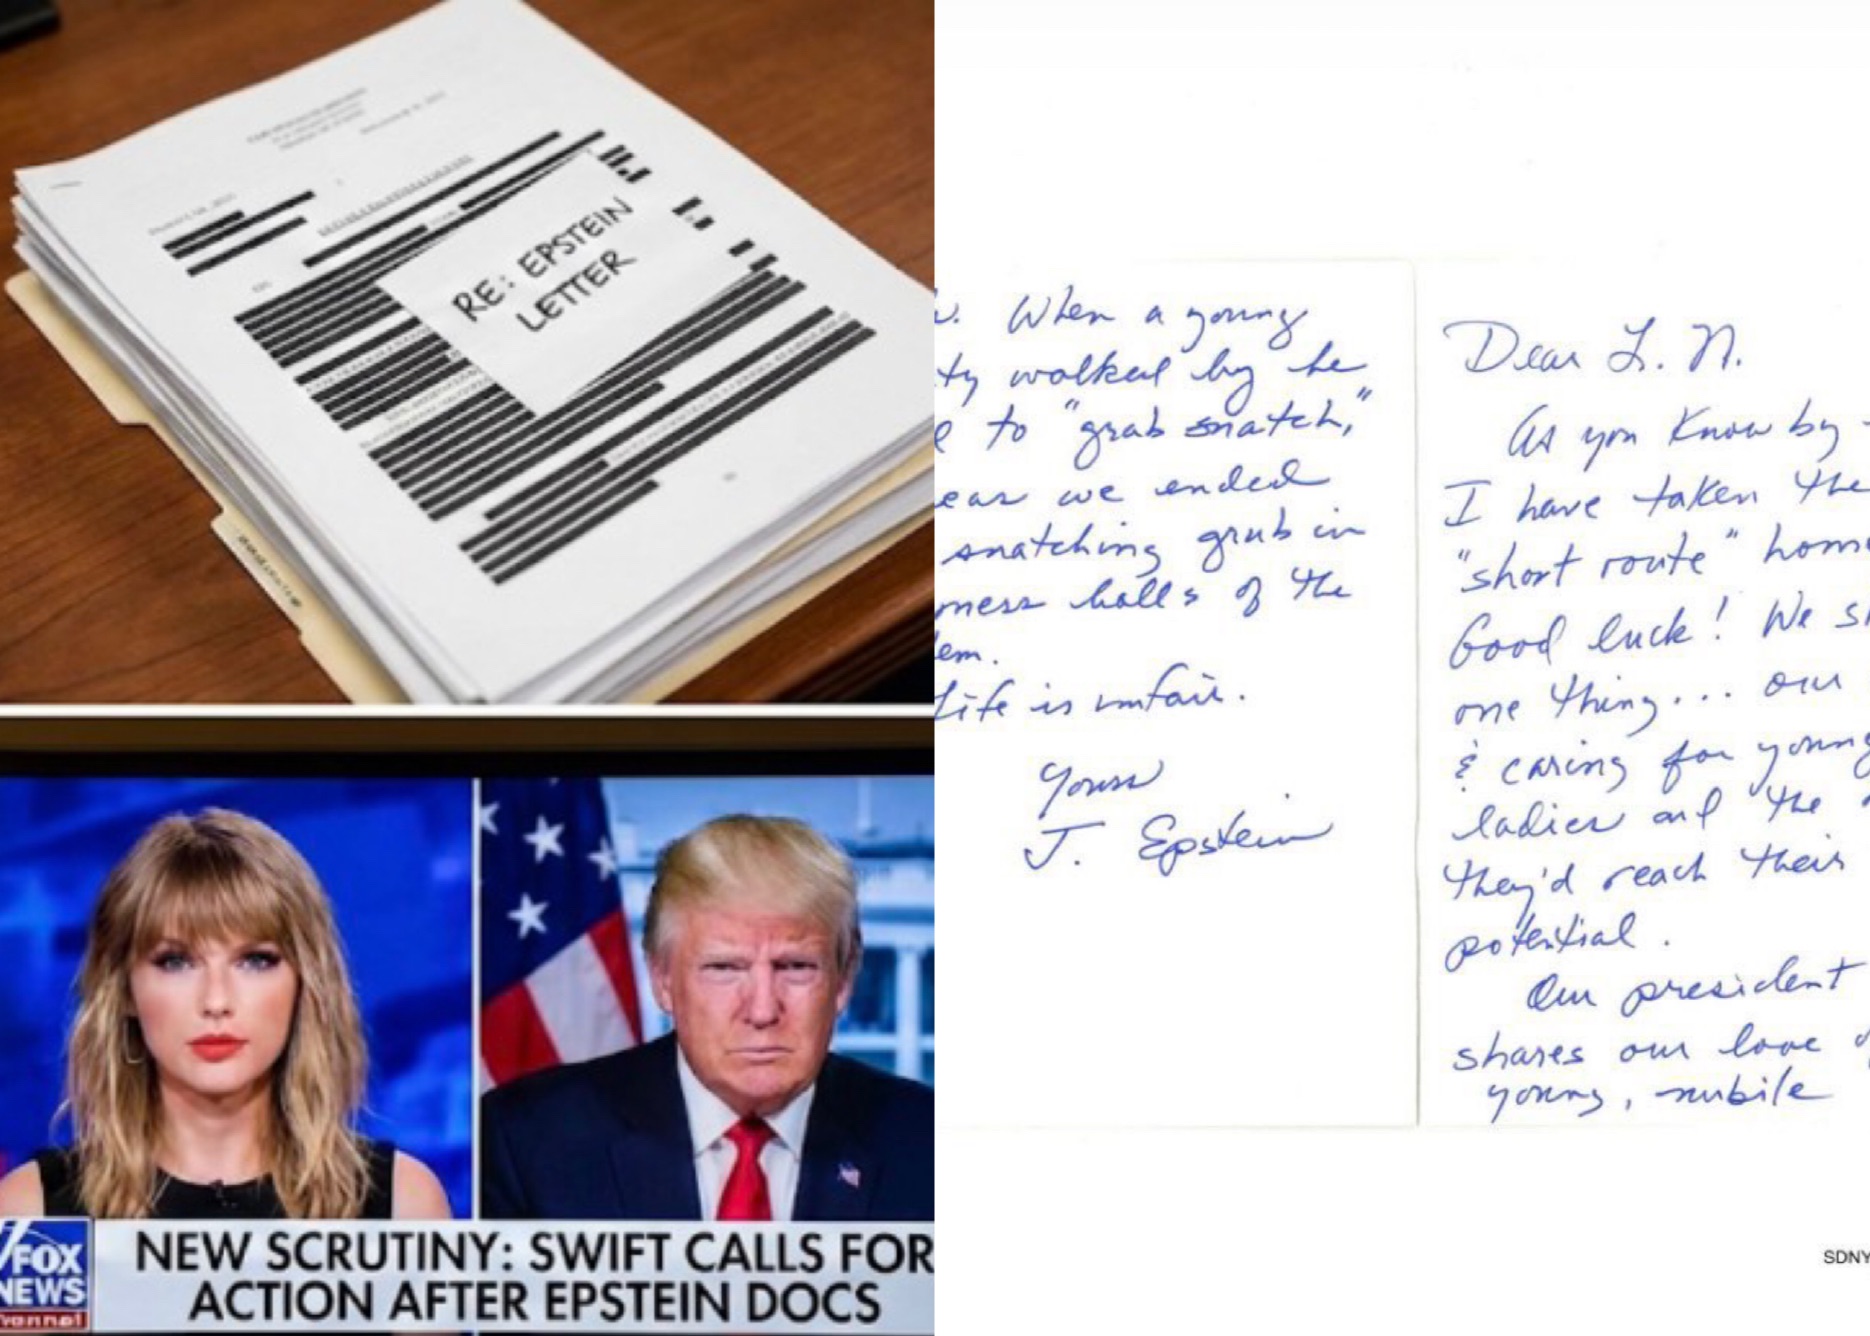 RE: EPSTEIN
LETTER
When a young
ty walked by he
to "grab snatch,"
eas we ended
snatching grub in
mess halls of the
em.
Life is unfair.
Yours
J. Epstein
Dear L. N.
As you know by
I have taken the
"short route" home
Good luck! We s
one thing... our
& caring for young
ladies and the
they'd reach their
potential.
Our president
shares our love
young, nubile
SDNY
FOX
NEWS
channel
NEW SCRUTINY: SWIFT CALLS FOR
ACTION AFTER EPSTEIN DOCS